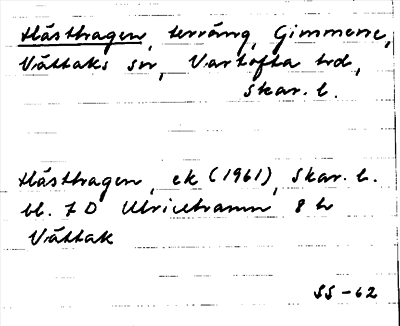 Hästhagen, terräng, Gimmene,
Vättaks sn, Vartofta hd,
Skar. l.
Hästhagen, ek (1961), Skar. l.
bl. 7 D Ulricehamn 8 h
Vättak
SS-62